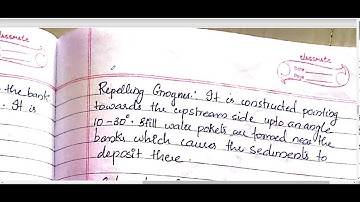 classmate
Date
Page
the bank
. It is
Repelling Groynes:- It is constructed pointing
towards the upstream side upto an angle
10-30°. Still water pokets are formed near the
banks which causes the sediments to
deposit there.